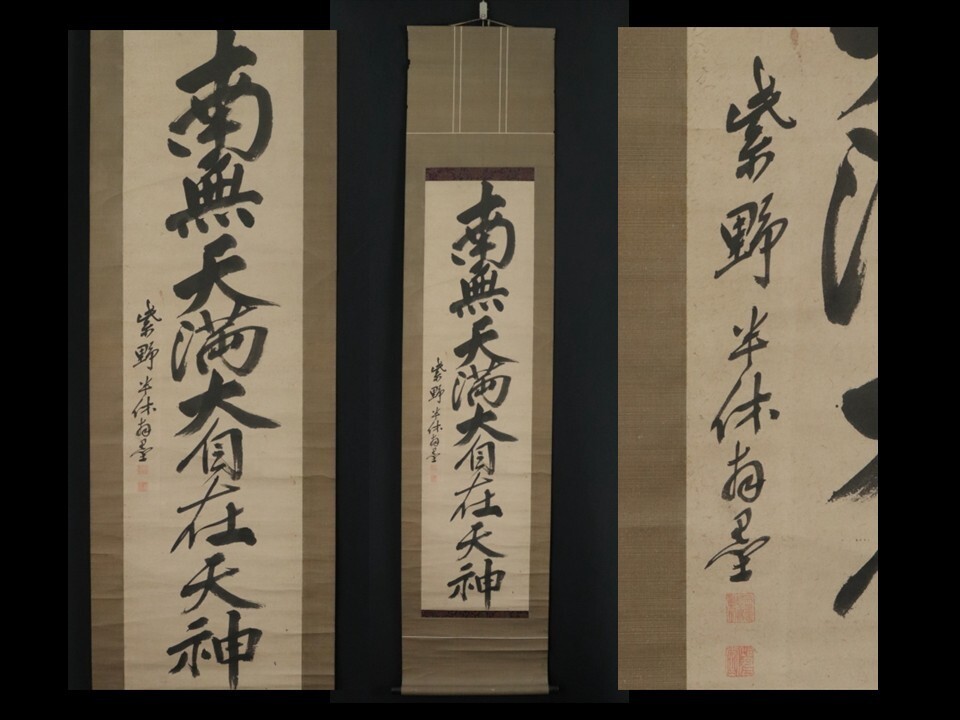 南無天満大自在天神
紫野半休翁墨
南無天満大自在天神
紫野半休翁墨
紫野半休翁墨